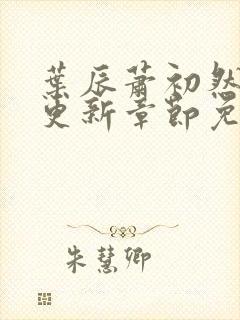 葉辰蕭初然
更新章節免
朱慧卿